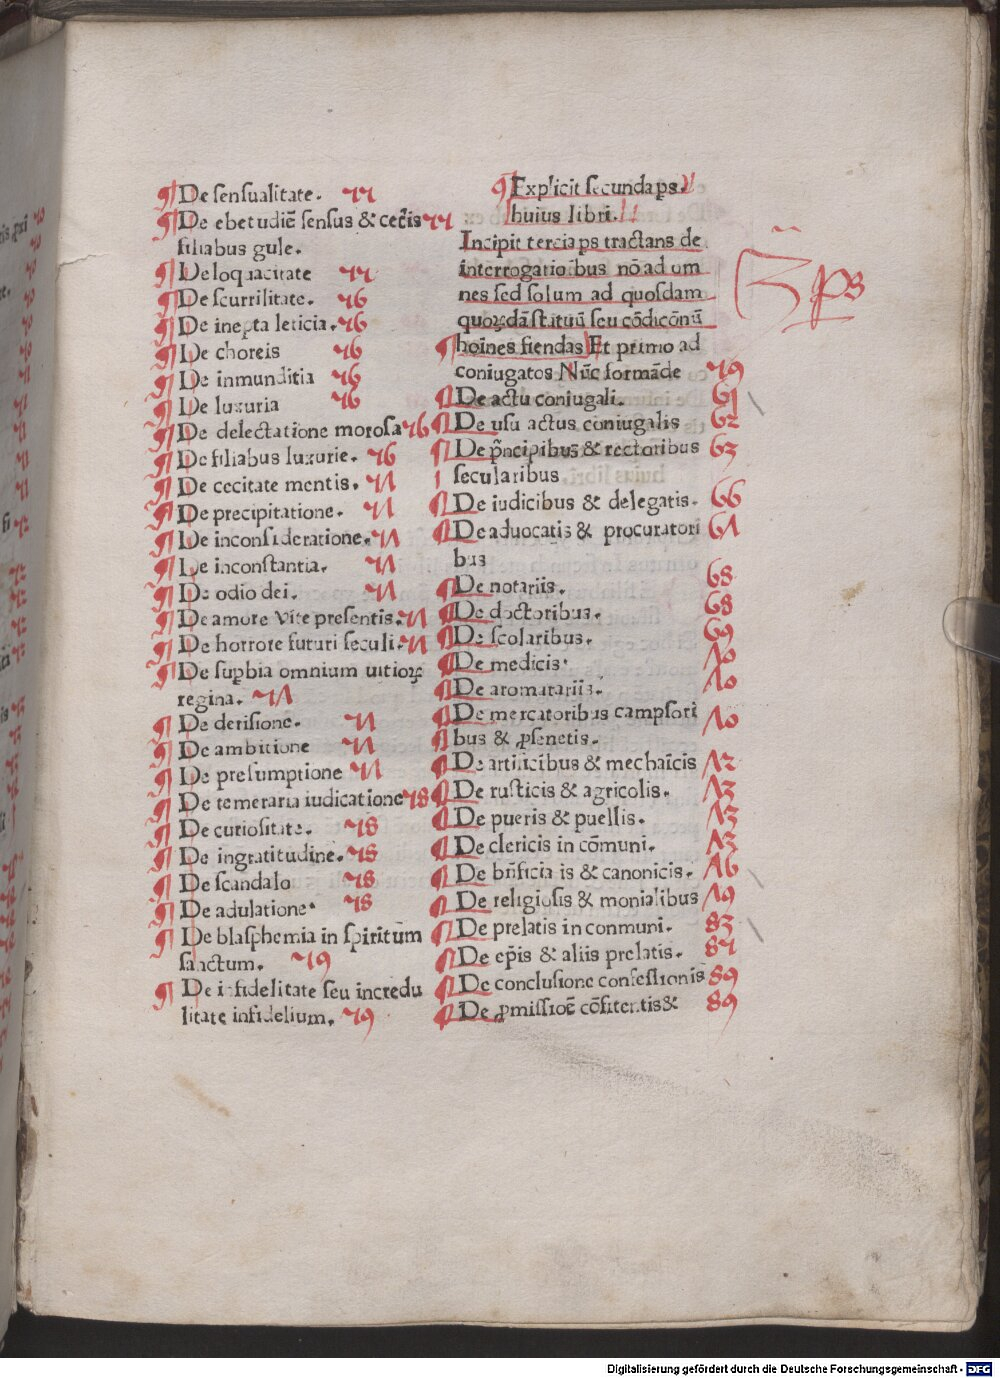 ¶ De sensualitate. 55
¶ De ebetudiē sensus & ceteris 55
filiabus gule.
¶ De loquacitate 55
¶ De scurrilitate. 56
¶ De inepta leticia. 56
¶ De choreis 56
¶ De inmunditia 56
¶ De luxuria 56
¶ De delectatione morosa 56
¶ De filiabus luxurie. 56
¶ De cecitate mentis. 57
¶ De precipitatione. 57
¶ De inconsideratione. 57
¶ De inconstantia. 57
¶ De odio dei. 57
¶ De amore vite presentis. 57
¶ De horrore futuri seculi. 57
¶ De supbia omnium uitioꝝ
regina. 57
¶ De derisione. 57
¶ De ambitione 57
¶ De presumptione 57
¶ De temeraria iudicatione 58
¶ De curiositate. 58
¶ De ingratitudine. 58
¶ De scandalo 58
¶ De adulatione. 58
¶ De blasphemia in spiritum
sanctum. 59
¶ De infidelitate seu incredu
litate infidelium. 59
¶ Explicit secunda ps.
huius libri.
Incipit tercia ps tractans de
interrogationibus nō ad om
nes sed solum ad quosdam
quoꝝdā statuū seu cōdicōnū
¶ hoīnes fiendas Et primo ad
coniugatos Nūc formāde 59
¶ De actu coniugali. 61
¶ De usu actus coniugalis 62
¶ De p̄ncipibus & rectoribus 63
secularibus
¶ De iudicibus & delegatis. 66
¶ De aduocatis & procuratori 67
bus
¶ De notariis. 68
¶ De doctoribus. 68
¶ De scolaribus. 69
¶ De medicis. 70
¶ De aromatariis. 70
¶ De mercatoribus campsori 70
bus & ꝓsenetis.
¶ De artificibus & mechaīcis 72
¶ De rusticis & agricolis. 73
¶ De pueris & puellis. 73
¶ De clericis in cōmuni. 73
¶ De bn̄ficiatis & canonicis. 76
¶ De religiosis & monialibus 79
¶ De prelatis in conmuni. 83
¶ De ep̄is & aliis prelatis. 87
¶ De conclusione confessionis 89
¶ De ꝓmissiōe cōfitentis & 89
3ª ps
Digitalisierung gefördert durch die Deutsche Forschungsgemeinschaft - DFG